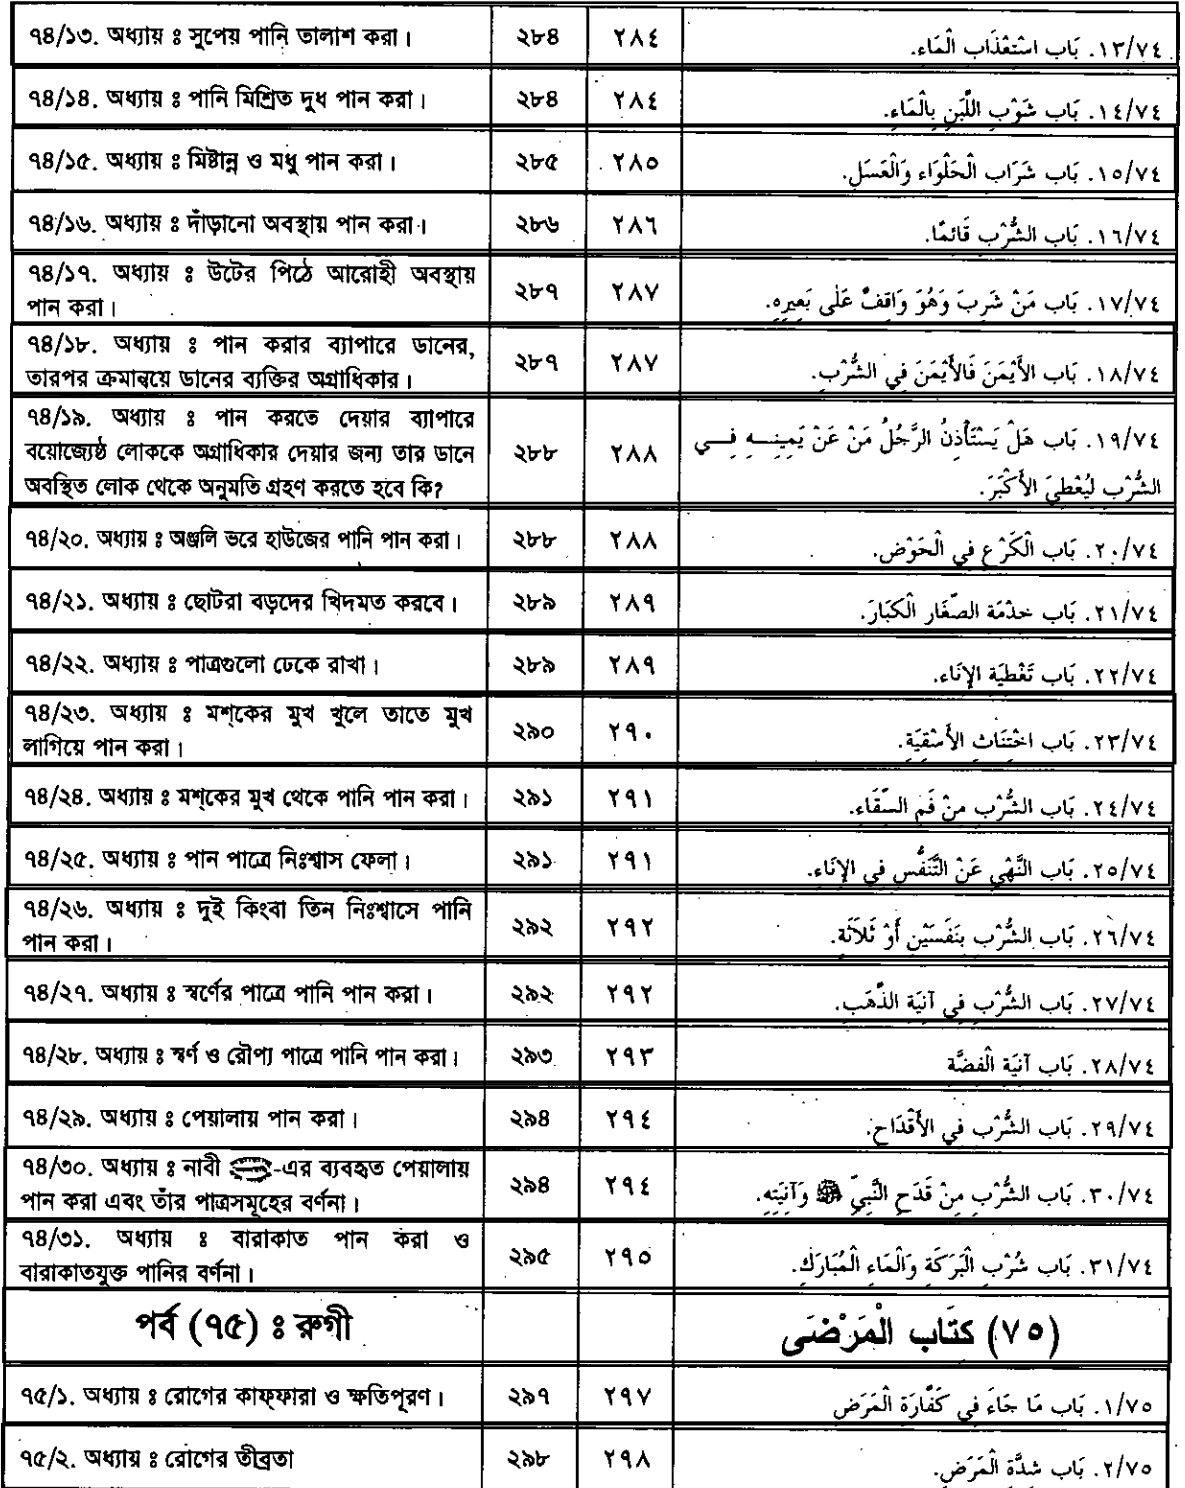 ৭৪/১৩. অধ্যায় ঃ সুপেয় পানি তালাশ করা। ২৮৪ ٢٨٤ ١٣/٧٤. بَاب اسْتِعْذَابِ الْمَاءِ.
৭৪/১৪. অধ্যায় ঃ পানি মিশ্রিত দুধ পান করা। ২৮৪ ٢٨٤ ١٤/٧٤. بَاب شَوْبِ اللَّبَنِ بِالْمَاءِ.
৭৪/১৫. অধ্যায় ঃ মিষ্টান্ন ও মধু পান করা। ২৮৫ ٢٨٥ ١٥/٧٤. بَاب شَرَابِ الْحَلْوَاءِ وَالْعَسَلِ.
৭৪/১৬. অধ্যায় ঃ দাঁড়ানো অবস্থায় পান করা। ২৮৬ ٢٨٦ ١٦/٧٤. بَاب الشُّرْبِ قَائِمًا.
৭৪/১৭. অধ্যায় ঃ উটের পিঠে আরোহী অবস্থায়
পান করা। ২৮৭ ٢٨٧ ١٧/٧٤. بَاب مَنْ شَرِبَ وَهُوَ وَاقِفٌ عَلَى بَعِيرِهِ.
৭৪/১৮. অধ্যায় ঃ পান করার ব্যাপারে ডানের,
তারপর ক্রমান্বয়ে ডানের ব্যক্তির অগ্রাধিকার। ২৮৭ ٢٨٧ ١٨/٧٤. بَاب الأَيْمَنَ فَالأَيْمَنَ فِي الشُّرْبِ.
৭৪/১৯. অধ্যায় ঃ পান করতে দেয়ার ব্যাপারে
বয়োজ্যেষ্ঠ লোককে অগ্রাধিকার দেয়ার জন্য তার ডানে
অবস্থিত লোক থেকে অনুমতি গ্রহণ করতে হবে কি? ২৮৮ ٢٨٨ ١٩/٧٤. بَاب هَلْ يَسْتَأْذِنُ الرَّجُلُ مَنْ عَنْ يَمِينِهِ فِي
الشُّرْبِ لِيُعْطِيَ الأَكْبَرَ.
৭৪/২০. অধ্যায় ঃ অঞ্জলি ভরে হাউজের পানি পান করা। ২৮৮ ٢٨٨ ٢٠/٧٤. بَاب الْكَرْعِ فِي الْحَوْضِ.
৭৪/২১. অধ্যায় ঃ ছোটরা বড়দের খিদমত করবে। ২৮৯ ٢٨٩ ٢١/٧٤. بَاب خِدْمَةِ الصِّغَارِ الْكِبَارَ.
৭৪/২২. অধ্যায় ঃ পাত্রগুলো ঢেকে রাখা। ২৮৯ ٢٨٩ ٢٢/٧٤. بَاب تَغْطِيَةِ الإِنَاءِ.
৭৪/২৩. অধ্যায় ঃ মশ্‌কের মুখ খুলে তাতে মুখ
লাগিয়ে পান করা। ২৯০ ٢٩٠ ٢٣/٧٤. بَاب اخْتِنَاثِ الأَسْقِيَةِ.
৭৪/২৪. অধ্যায় ঃ মশ্‌কের মুখ থেকে পানি পান করা। ২৯১ ٢٩١ ٢٤/٧٤. بَاب الشُّرْبِ مِنْ فَمِ السِّقَاءِ.
৭৪/২৫. অধ্যায় ঃ পান পাত্রে নিঃশ্বাস ফেলা। ২৯১ ٢٩١ ٢٥/٧٤. بَاب النَّهْيِ عَنْ التَّنَفُّسِ فِي الإِنَاءِ.
৭৪/২৬. অধ্যায় ঃ দুই কিংবা তিন নিঃশ্বাসে পানি
পান করা। ২৯২ ٢٩٢ ٢٦/٧٤. بَاب الشُّرْبِ بِنَفَسَيْنِ أَوْ ثَلاَثَةٍ.
৭৪/২৭. অধ্যায় ঃ স্বর্ণের পাত্রে পানি পান করা। ২৯২ ٢٩٢ ٢٧/٧٤. بَاب الشُّرْبِ فِي آنِيَةِ الذَّهَبِ.
৭৪/২৮. অধ্যায় ঃ স্বর্ণ ও রৌপ্য পাত্রে পানি পান করা। ২৯৩ ٢٩٣ ٢٨/٧٤. بَاب آنِيَةِ الْفِضَّةِ
৭৪/২৯. অধ্যায় ঃ পেয়ালায় পান করা। ২৯৪ ٢٩٤ ٢٩/٧٤. بَاب الشُّرْبِ فِي الأَقْدَاحِ.
৭৪/৩০. অধ্যায় ঃ নাবী ﷺ-এর ব্যবহৃত পেয়ালায়
পান করা এবং তাঁর পাত্রসমূহের বর্ণনা। ২৯৪ ٢٩٤ ٣٠/٧٤. بَاب الشُّرْبِ مِنْ قَدَحِ النَّبِيِّ ﷺ وَآنِيَتِهِ.
৭৪/৩১. অধ্যায় ঃ বারাকাত পান করা ও
বারাকাতযুক্ত পানির বর্ণনা। ২৯৫ ٢٩٥ ٣١/٧٤. بَاب شُرْبِ الْبَرَكَةِ وَالْمَاءِ الْمُبَارَكِ.
পর্ব (৭৫) ঃ রুগী (٧٥) كِتَاب الْمَرْضَى
৭৫/১. অধ্যায় ঃ রোগের কাফ্‌ফারা ও ক্ষতিপূরণ। ২৯৭ ٢٩٧ ١/٧٥. بَاب مَا جَاءَ فِي كَفَّارَةِ الْمَرَضِ
৭৫/২. অধ্যায় ঃ রোগের তীব্রতা ২৯৮ ٢٩٨ ٢/٧٥. بَاب شِدَّةِ الْمَرَضِ.